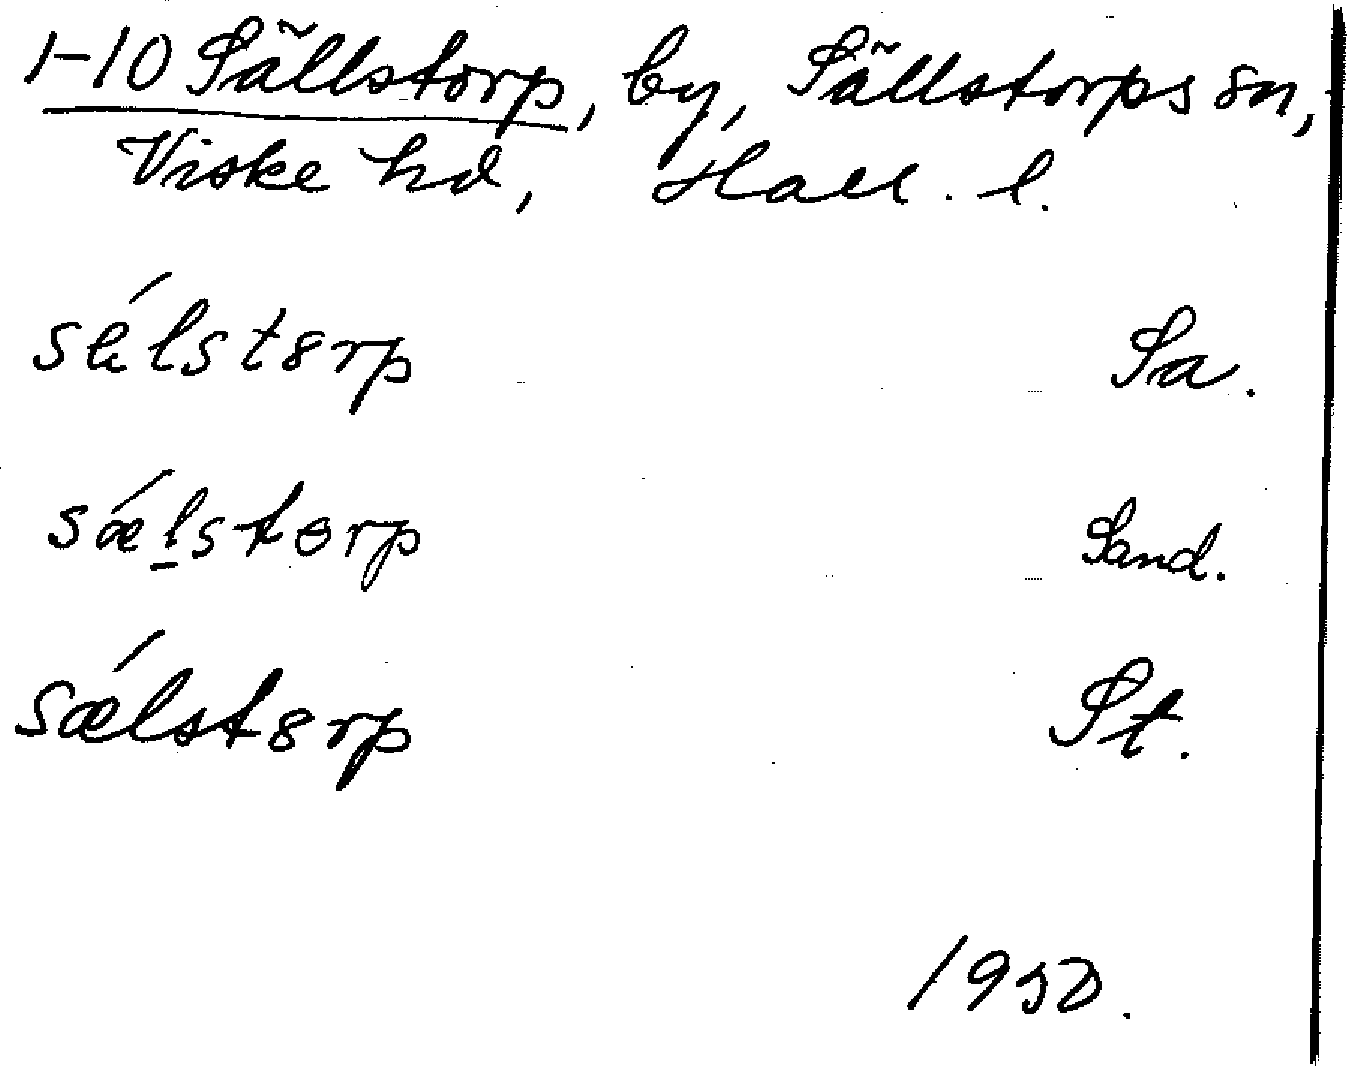 1-10 Sällstorp, by, Sällstorps sn,
Viske hd, Hall. l.
sǽlstɵrp Sa.
sǽl̠storp Sand.
sǽlstɵrp St.
1950.